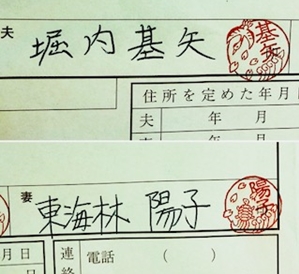 夫 堀内基矢 基矢
住所を定めた年月日
夫 年 月
妻 東海林 陽子 陽子
月日 連 電話 ( )
絡